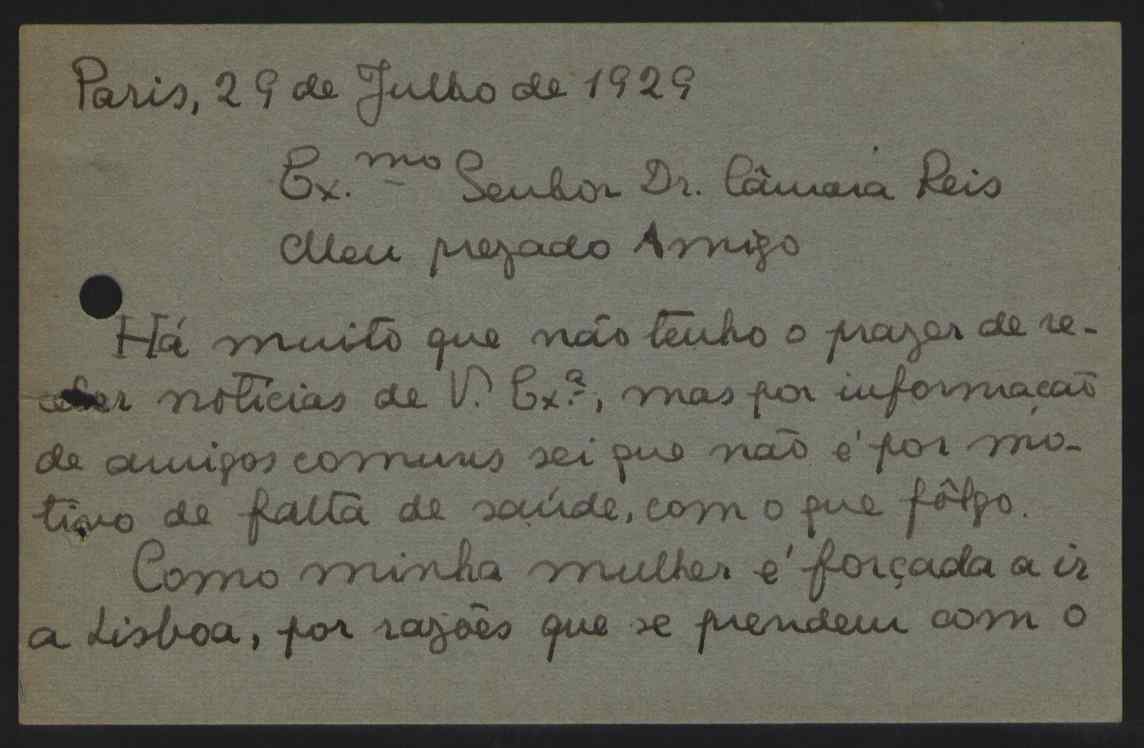 Paris, 29 de Julho de 1929
Ex.mo Senhor Dr. Câmara Reis
Meu prezado Amigo
Há muito que não tenho o prazer de re-
ceber notícias de V. Ex.ª, mas por informação
de amigos comuns sei que não é por mo-
tivo de falta de saúde, com o que fôlgo.
Como minha mulher é forçada a ir
a Lisboa, por razões que se prendem com o